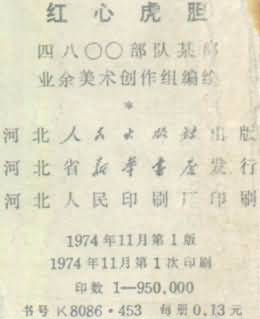 红心虎胆
四八〇〇部队某部
业余美术创作组编绘
*
河北人民出版社出版
河北省新华书店发行
河北人民印刷厂印刷
1974年11月第1版
1974年11月第1次印刷
印数 1—950,000
书号 K8086·453 每册 0.13元